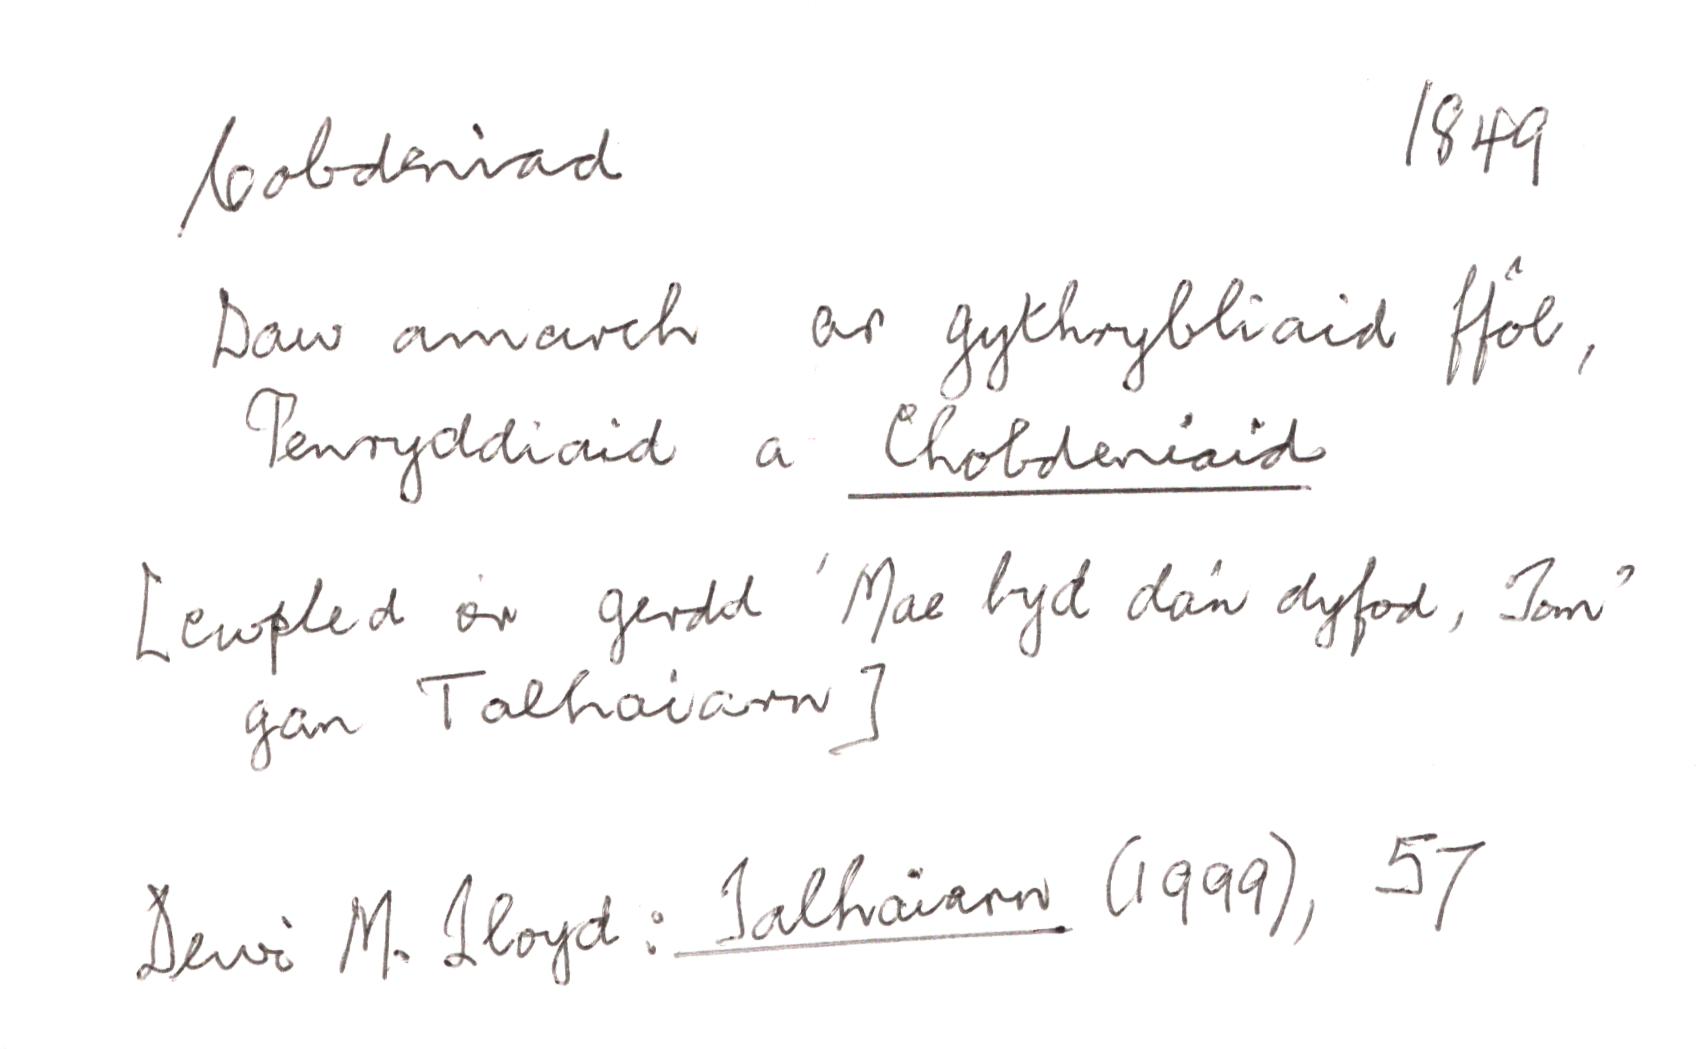 Cobdeniad 1849
Daw amarch ar gythrybliaid ffôl,
Penryddiaid a Chobdeniaid
[cwpled o'r gerdd 'Mae byd da'n dyfod, Tom'
gan Talhaiarn]
Dewi M. Lloyd: Talhaiarn (1999), 57